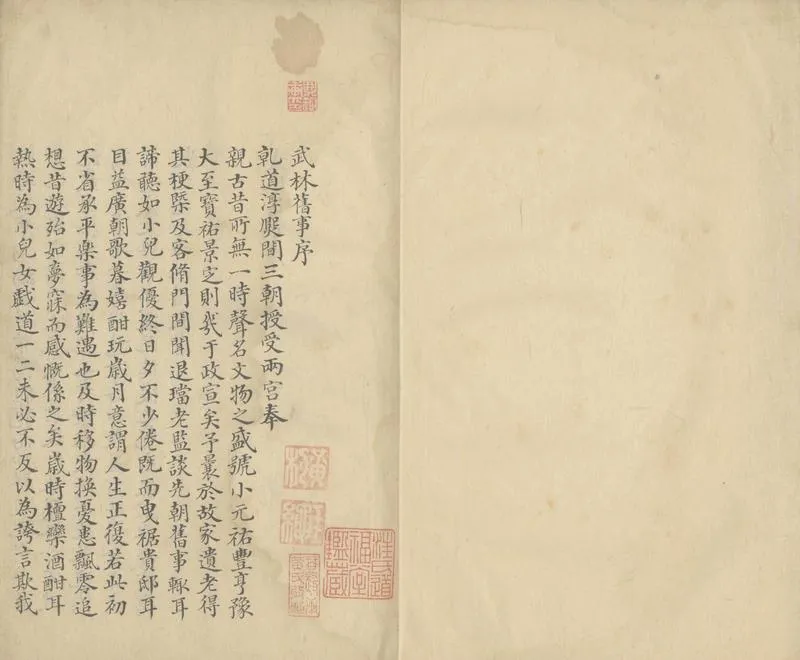 武林舊事序
乹道淳熈間三朝授受兩宮奉
親古昔所無一時聲名文物之盛號小元祐豐亨豫
大至寶祐景定則幾于政宣矣予曩於故家遺老得
其梗槩及客脩門間聞退璫老監談先朝舊事輒耳
諦聽如小兒觀優終日夕不少倦既而曳裾貴邸耳
目益廣朝歌暮嬉酣玩歲月意謂人生正復若此初
不省承平樂事為難遇也及時移物換憂患飄零追
想昔遊殆如夢寐而感慨係之矣歲時檀欒酒酣耳
熱時為小兒女戲道一二未必不反以為誇言欺我